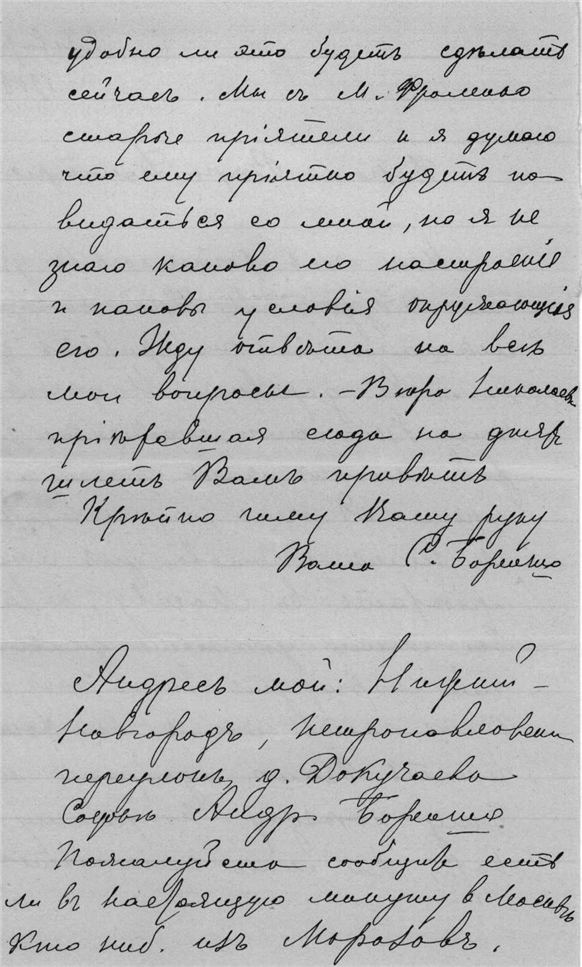 удобно ли это будетъ сдѣлать
сейчасъ. Мы съ М. Фроленко
старые пріятели и я думаю
что ему пріятно будетъ по-
видаться со мной, но я не
знаю каково его настроеніе
и каковы условія окружающія
его. Жду отвѣта на всѣ
мои вопросы. – Вѣра Николаевн
пріѣхавшая сюда на дняхъ
шлетъ Вамъ привѣтъ
Крѣпко жму Вашу руку
Ваша С.
Адресъ мой: Нижній –
Новгородъ, Петропавловскій
переулокъ, д. Докучаева
Софьѣ Андр.
Пожалуйста сообщите есть
ли въ настоящую минуту в Москвѣ
кто ниб. изъ Морозовъ.